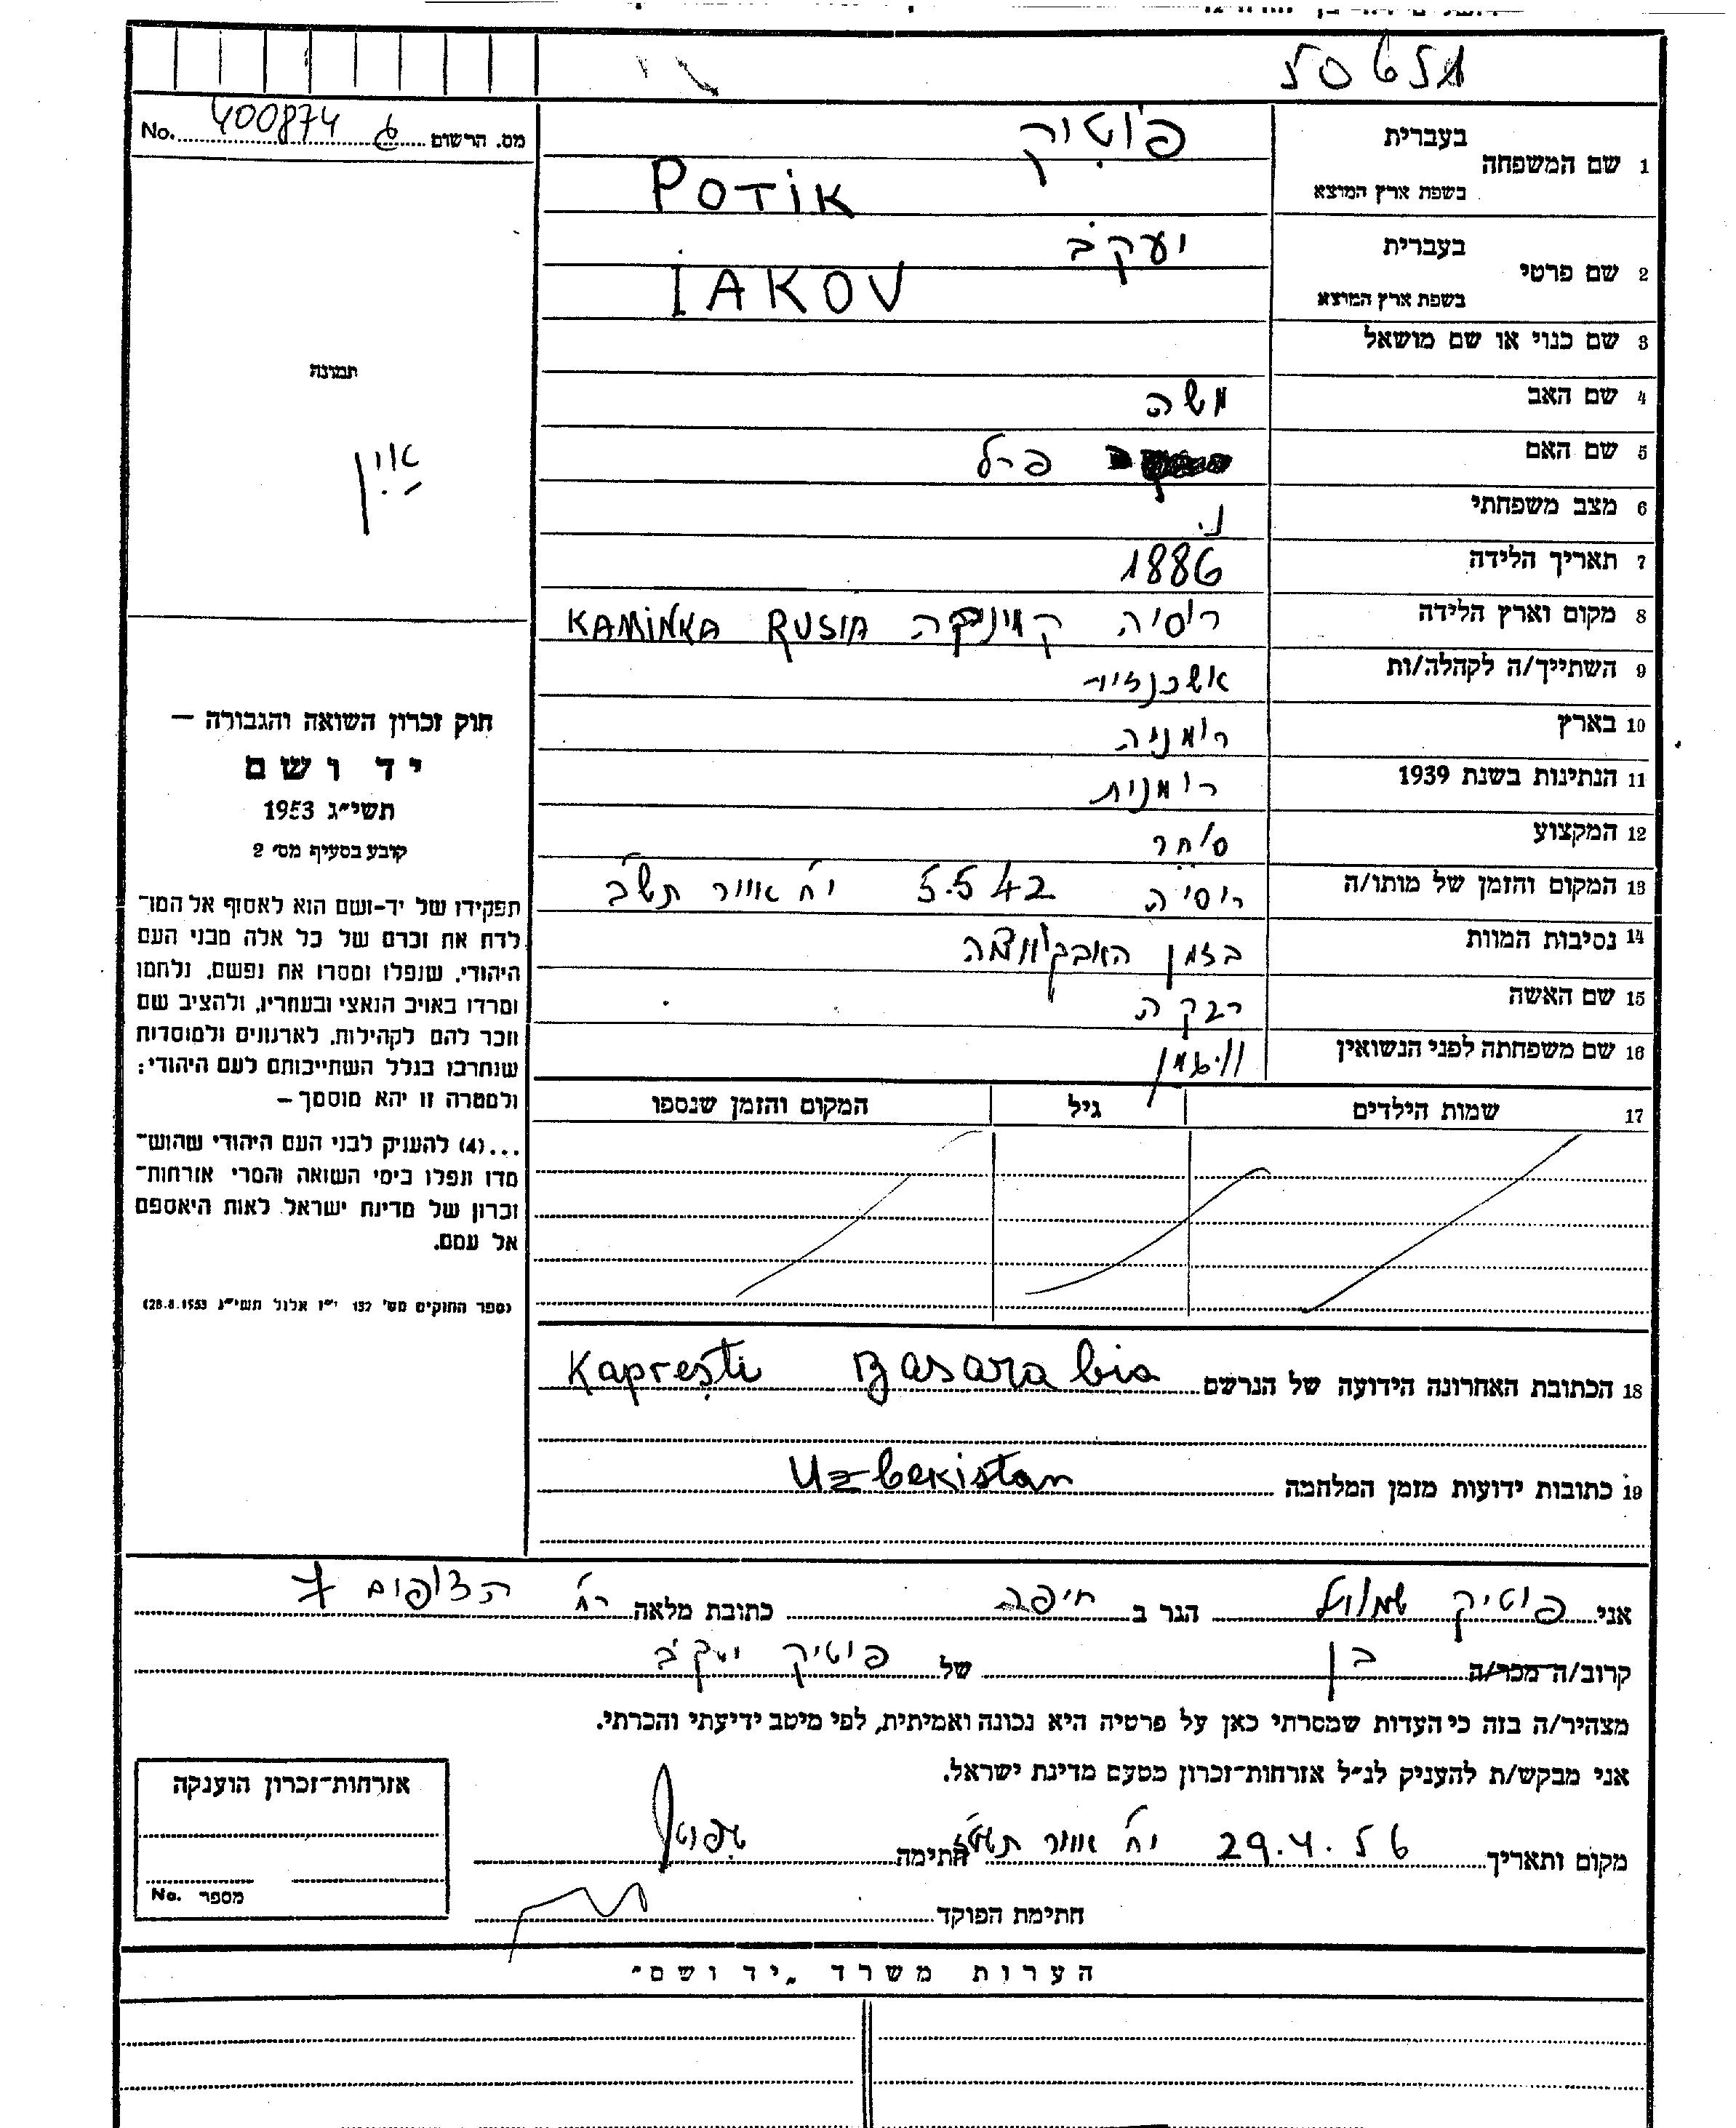 50651
No. 400874 מס. הרשום
1 שם המשפחה
בעברית
פוטיק
בשפת ארץ המוצא
POTIK
2 שם פרטי
בעברית
יעקב
בשפת ארץ המוצא
IAKOV
3 שם כנוי או שם מושאל
4 שם האב משה
5 שם האם פרל
6 מצב משפחתי נ.
7 תאריך הלידה 1886
8 מקום וארץ הלידה רוסיה קמינקה KAMINKA RUSIA
9 השתייך/ה לקהלה/ות אשכנזית
10 בארץ רומניה
11 הנתינות בשנת 1939 רומנית
12 המקצוע סוחר
13 המקום והזמן של מותו/ה רוסיה 5.5.42 י"ח אייר תש"ב
14 נסיבות המוות בזמן האבקואציה
15 שם האשה רבקה
16 שם משפחתה לפני הנשואין וייצמן
17 שמות הילדים גיל המקום והזמן שנספו
תמונה
אין
חוק זכרון השואה והגבורה –
יד ושם
תשי״ג 1953
קובע בסעיף מס׳ 2
תפקידו של יד-ושם הוא לאסוף אל המו־
לדת את זכרם של כל אלה מבני העם
היהודי, שנפלו ומסרו את נפשם, נלחמו
ומרדו באויב הנאצי ובעוזריו, ולהציב שם
וזכר להם לקהילות, לארגונים ולמוסדות
שנחרבו בגלל השתייכותם לעם היהודי;
ולמטרה זו יהא מוסמך –
...(4) להעניק לבני העם היהודי שהוש־
מדו ונפלו בימי השואה והמרי אזרחות־
זכרון של מדינת ישראל לאות היאספם
אל עמם.
(ספר החוקים מס׳ 132 י״ז אלול תשי״ג 28.8.1953)
18 הכתובת האחרונה הידועה של הנרשם Kapreşti Basarabia
19 כתובות ידועות מזמן המלחמה Uzbekistan
אני פוטיק שמואל הגר ב חיפה כתובת מלאה רח' הצופים 7
קרוב/ה מכר/ה בן של פוטיק יעקב
מצהיר/ה בזה כי העדות שמסרתי כאן על פרטיה היא נכונה ואמיתית, לפי מיטב ידיעתי והכרתי.
אני מבקש/ת להעניק לנ״ל אזרחות־זכרון מטעם מדינת ישראל.
מקום ותאריך 29.4.56 י"ח אייר חתימה
חתימת הפוקד
אזרחות־זכרון הוענקה
מספר No.
הערות משרד „יד ושם״